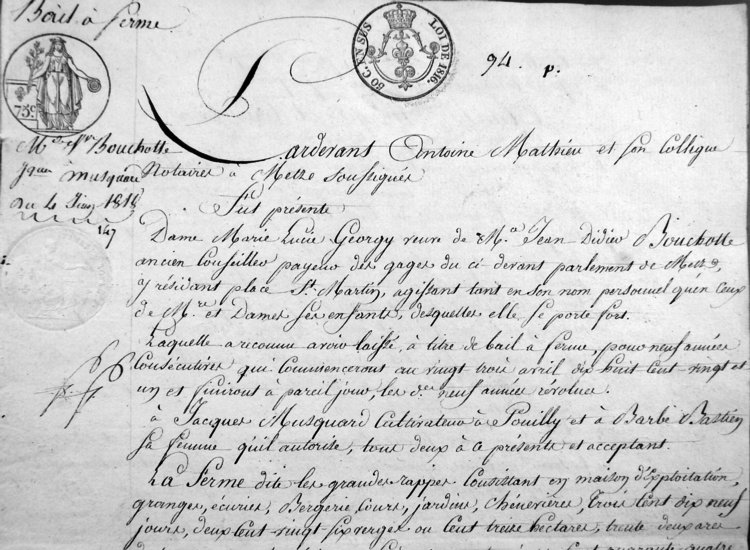 Bail à ferme.
75 c
50 C. EN SUS
LOI DE 1816.
94. p.
Bouchotte
à musquard
du 4 Juin 1818
147
Pardevant Antoine Mathieu et son Collègue
Notaires à Metz soussignés
Fut présente
Dame Marie Lucie Georgy veuve de M. Jean Didier Bouchotte
ancien Conseiller payeur des gages du ci devant parlement de Metz,
y résidant place St. Martin, agissant tant en son nom personnel qu'en ceux
de Mrs. et Dames ses enfants, desquelles elle se porte fort.
Laquelle a reconnu avoir laissé, à titre de bail à ferme, pour neuf années
Consécutives qui commenceront au vingt trois avril dix huit cent vingt et
un et finiront à pareil jour, les dtes neuf années révolues.
à Jacques Musquard Cultivateur à Pouilly et à Barbe Bastien
sa femme qu'il autorise, tous deux à ce présents et acceptant.
La Ferme dite les grandes rappes Consistant en maison d'Exploitation,
granges, écuries, Bergerie, Cours, jardins, Chénevières, Trois Cent dix neuf
jours, deux Cent vingt six verges ou Cent treize hectares, trente deux ares
quatre